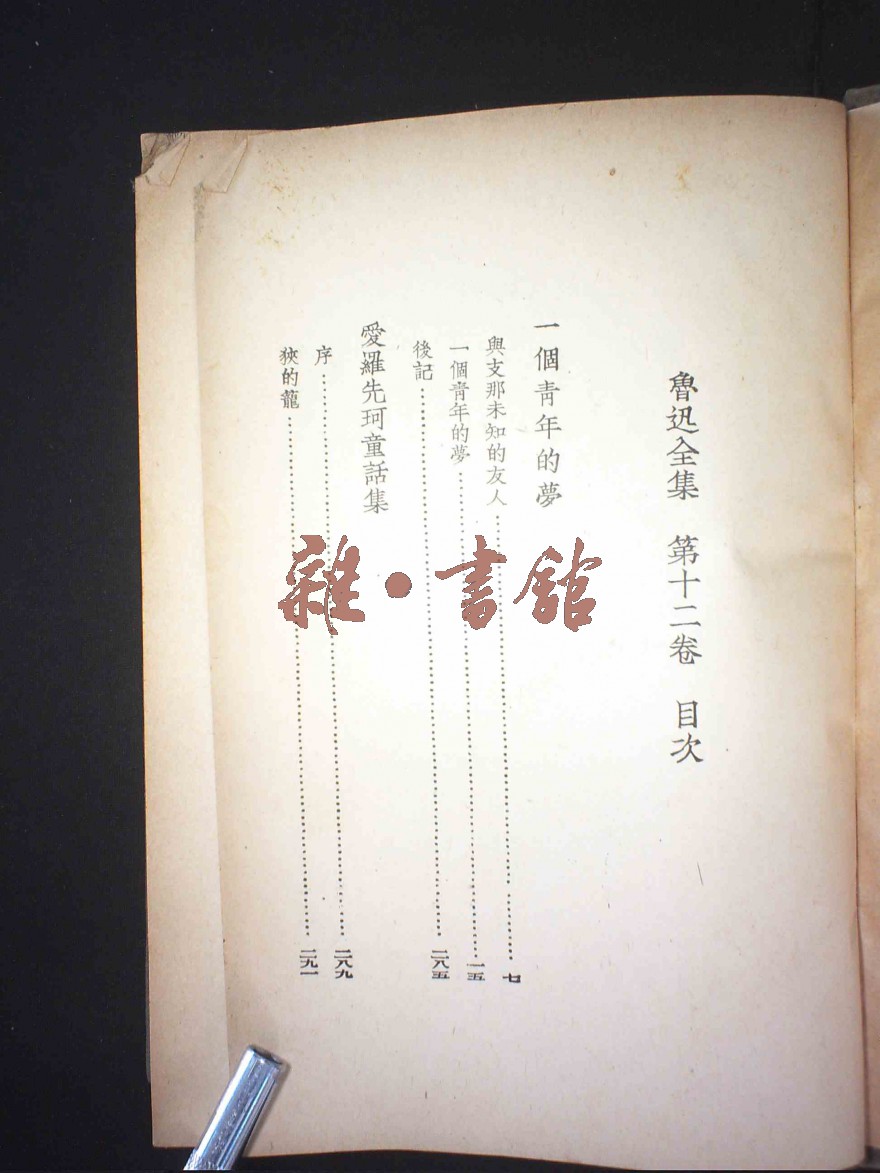 魯迅全集　第十二卷　目次
一個青年的夢
與支那未知的友人……七
一個青年的夢……一五
後記……二八五
愛羅先珂童話集
序……二八九
狹的籠……二九一
雜·書館